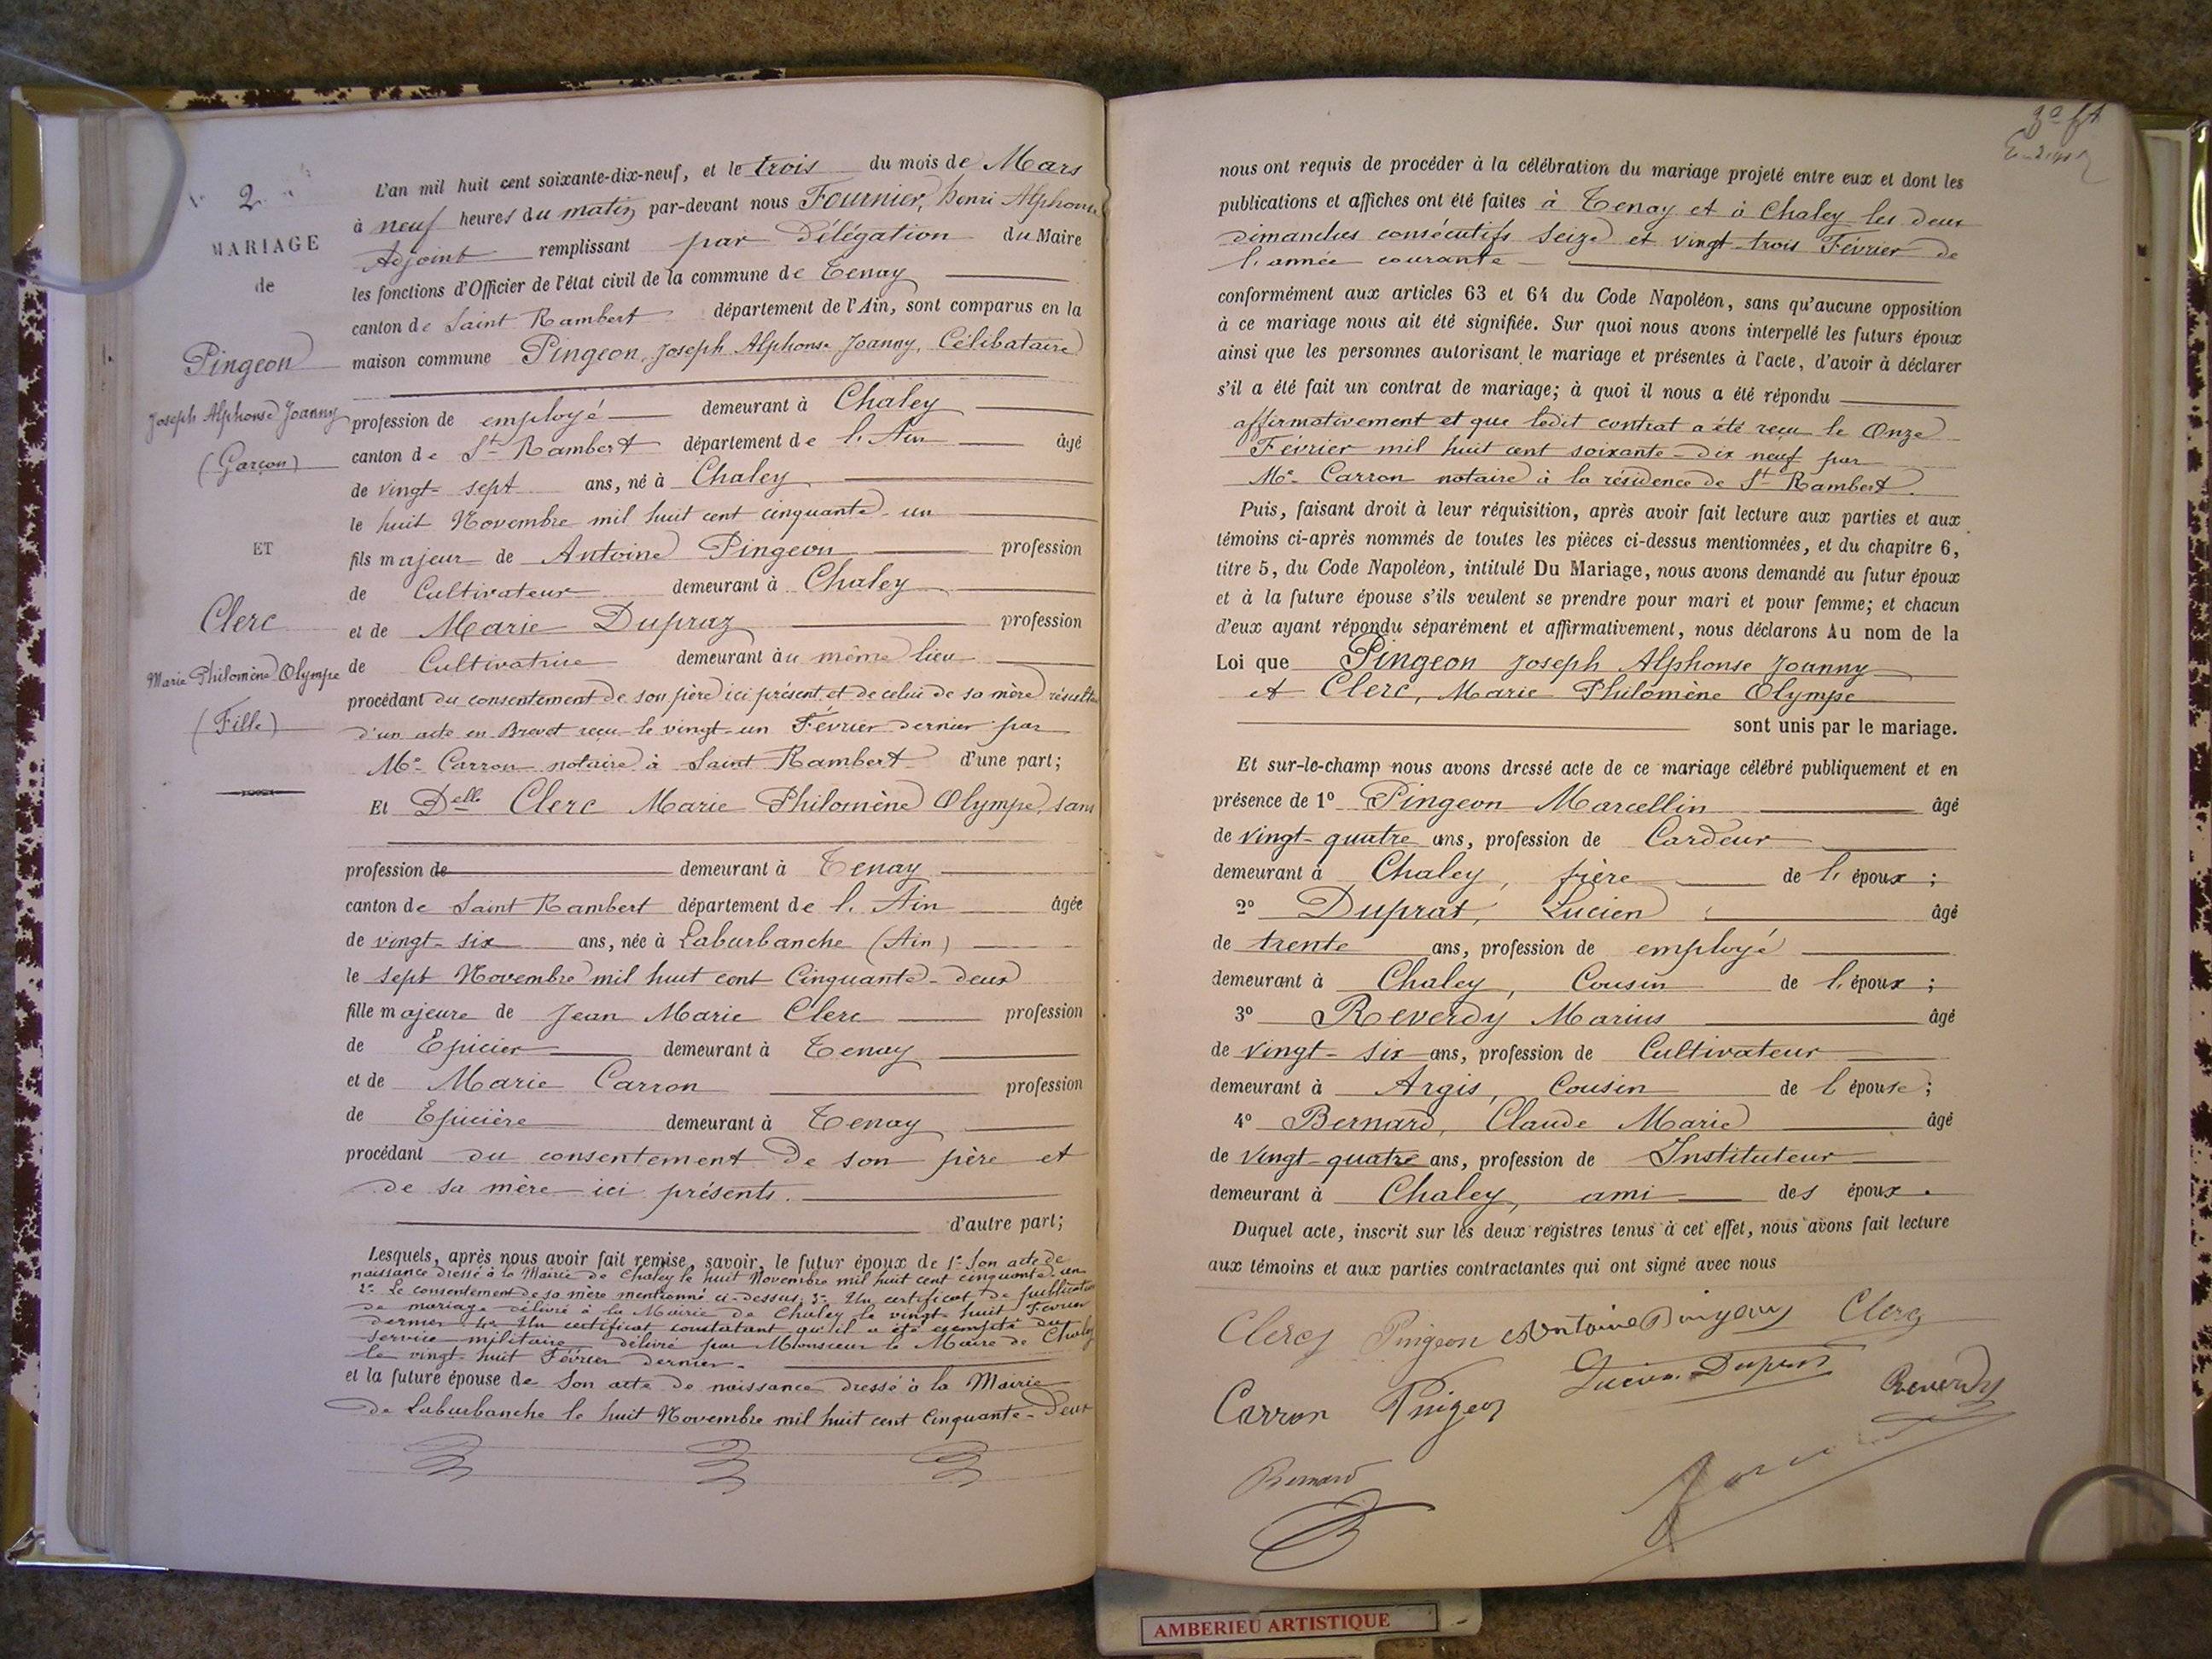 2
MARIAGE
de
Pingeon
Joseph Alphonse Joanny
(Garçon)
ET
Clerc
Marie Philomène Olympe
(Fille)
L'an mil huit cent soixante-dix-neuf, et le trois du mois de Mars
à neuf heures du matin par-devant nous Fournier, henri Alphonse
Adjoint remplissant par Délégation du Maire
les fonctions d'Officier de l'état civil de la commune de Tenay
canton de Saint Rambert département de l'Ain, sont comparus en la
maison commune Pingeon, Joseph Alphonse Joanny, Célibataire
profession de employé demeurant à Chaley
canton de St Rambert département de l'Ain âgé
de vingt-sept ans, né à Chaley
le huit Novembre mil huit cent cinquante-un
fils majeur de Antoine Pingeon profession
de Cultivateur demeurant à Chaley
et de Marie Dupraz profession
de Cultivatrice demeurant au même lieu
procédant du consentement de son père ici présent et de celui de sa mère résultant
d'un acte en Brevet reçu le vingt-un Février dernier par
Me Carron notaire à Saint Rambert d'une part;
Et Delle Clerc Marie Philomène Olympe, sans
profession de demeurant à Tenay
canton de Saint Rambert département de l'Ain âgée
de vingt-six ans, née à Laburbanche (Ain)
le sept Novembre mil huit cent Cinquante-deux
fille majeure de Jean Marie Clerc profession
de Epicier demeurant à Tenay
et de Marie Carron profession
de Epicière demeurant à Tenay
procédant du consentement de son père et
de sa mère ici présents.
d'autre part;
Lesquels, après nous avoir fait remise, savoir, le futur époux de 1º Son acte de
naissance dressé à la Mairie de Chaley le huit Novembre mil huit cent cinquante-un
2º Le consentement de sa mère mentionné ci-dessus; 3º Un certificat de publication
de mariage délivré à la Mairie de Chaley le vingt-huit Février
dernier 4º Un certificat constatant qu'il a été exempté du
service militaire délivré par Monsieur le Maire de Chaley
le vingt-huit Février dernier.
et la future épouse de Son acte de naissance dressé à la Mairie
de Laburbanche le huit Novembre mil huit cent Cinquante-Deux
nous ont requis de procéder à la célébration du mariage projeté entre eux et dont les
publications et affiches ont été faites à Tenay et à Chaley les deux
dimanches consécutifs Seize et vingt-trois Février de
l'année courante
conformément aux articles 63 et 64 du Code Napoléon, sans qu'aucune opposition
à ce mariage nous ait été signifiée. Sur quoi nous avons interpellé les futurs époux
ainsi que les personnes autorisant le mariage et présentes à l'acte, d'avoir à déclarer
s'il a été fait un contrat de mariage; à quoi il nous a été répondu
affirmativement et que ledit contrat a été reçu le Onze
Février mil huit cent soixante-dix neuf par
Me Carron notaire à la résidence de St Rambert.
Puis, faisant droit à leur réquisition, après avoir fait lecture aux parties et aux
témoins ci-après nommés de toutes les pièces ci-dessus mentionnées, et du chapitre 6,
titre 5, du Code Napoléon, intitulé Du Mariage, nous avons demandé au futur époux
et à la future épouse s'ils veulent se prendre pour mari et pour femme; et chacun
d'eux ayant répondu séparément et affirmativement, nous déclarons Au nom de la
Loi que Pingeon Joseph Alphonse Joanny
et Clerc, Marie Philomène Olympe
sont unis par le mariage.
Et sur-le-champ nous avons dressé acte de ce mariage célébré publiquement et en
présence de 1º Pingeon Marcellin âgé
de vingt-quatre ans, profession de Cardeur
demeurant à Chaley, frère de l'époux;
2º Duprat, Lucien âgé
de trente ans, profession de employé
demeurant à Chaley, Cousin de l'époux;
3º Reverdy Marius âgé
de vingt-six ans, profession de Cultivateur
demeurant à Argis, Cousin de l'épouse;
4º Bernard, Claude Marie âgé
de vingt-quatre ans, profession de Instituteur
demeurant à Chaley, ami des époux.
Duquel acte, inscrit sur les deux registres tenus à cet effet, nous avons fait lecture
aux témoins et aux parties contractantes qui ont signé avec nous
Clerc Pingeon Antoine Pingeon Clerc
Carron Pingeon Lucien Duprat Reverdy
Bernard
AMBERIEU ARTISTIQUE